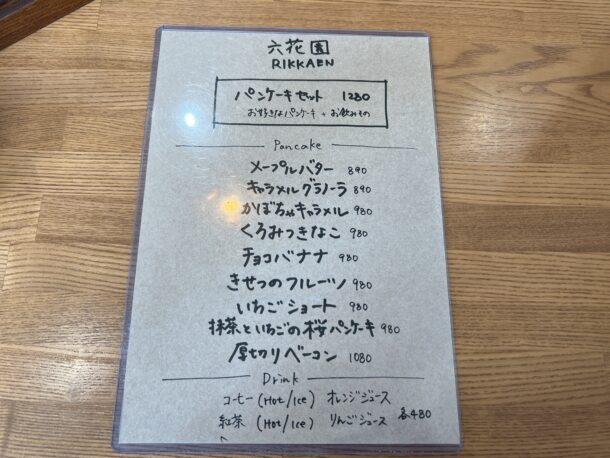 六花園
RIKKAEN
パンケーキセット 1280
お好きなパンケーキ + お飲みもの
Pancake
メープルバター 890
キャラメルグラノーラ 890
かぼちゃキャラメル 980
くろみつきなこ 980
チョコバナナ 980
きせつのフルーツ 980
いちごショート 980
抹茶といちごの桜パンケーキ 980
厚切りベーコン 1080
Drink
コーヒー (Hot/Ice) オレンジジュース
紅茶 (Hot/Ice) りんごジュース 各480